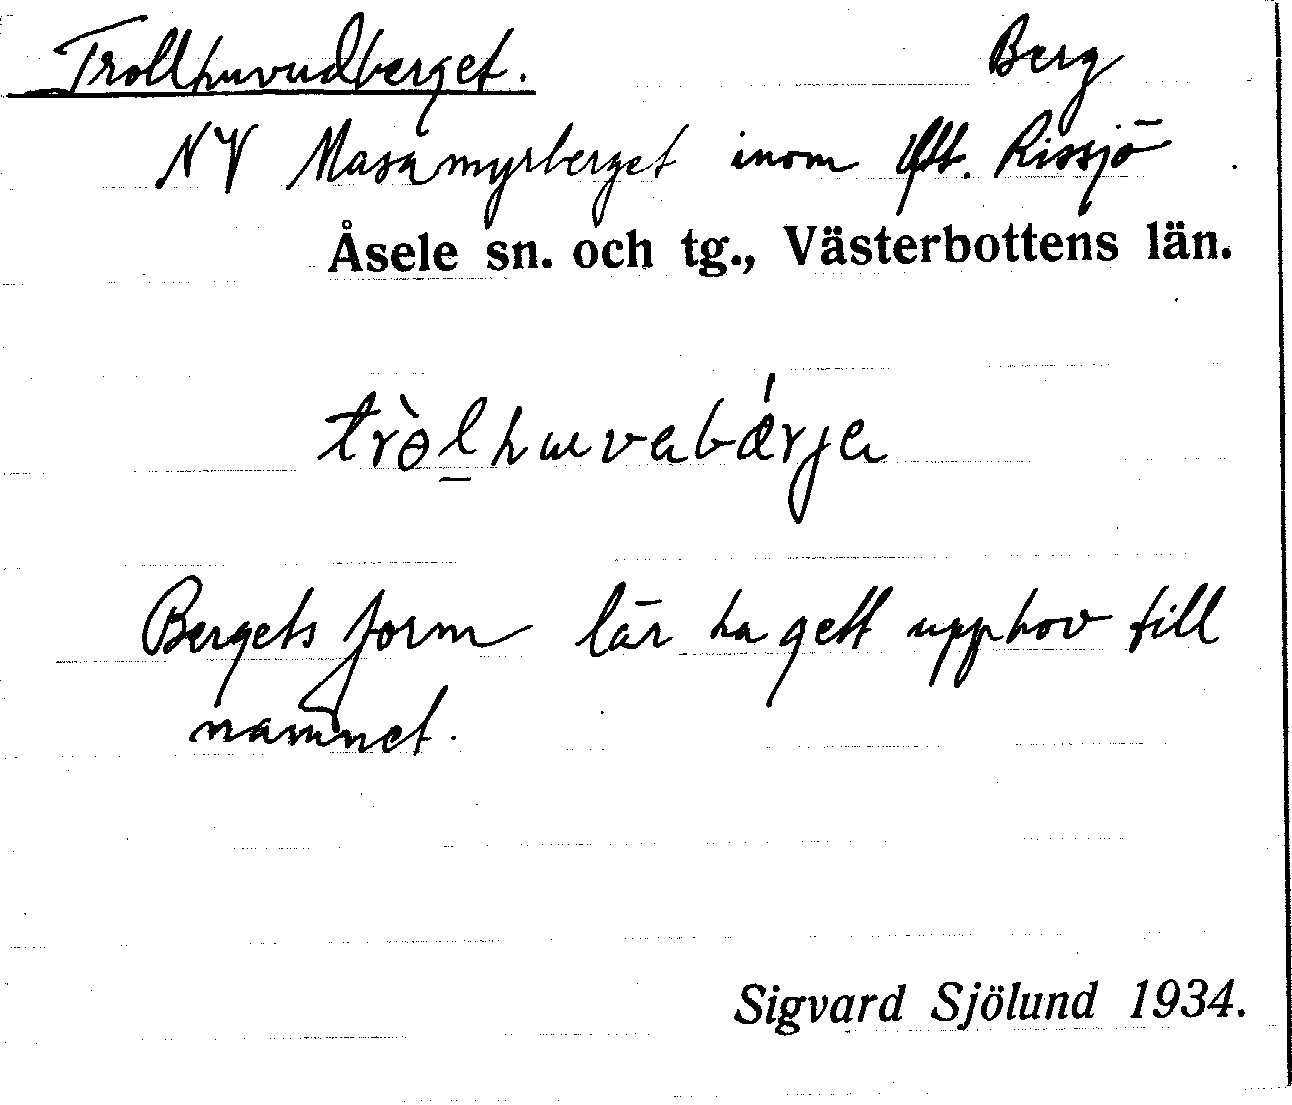 Trollhuvudberget. Berg
NV Masamyrberget inom Rissjö
Åsele sn. och tg., Västerbottens län.
tròl̲huvabǽrja
Bergets form lär ha gett upphov till
namnet.
Sigvard Sjölund 1934.